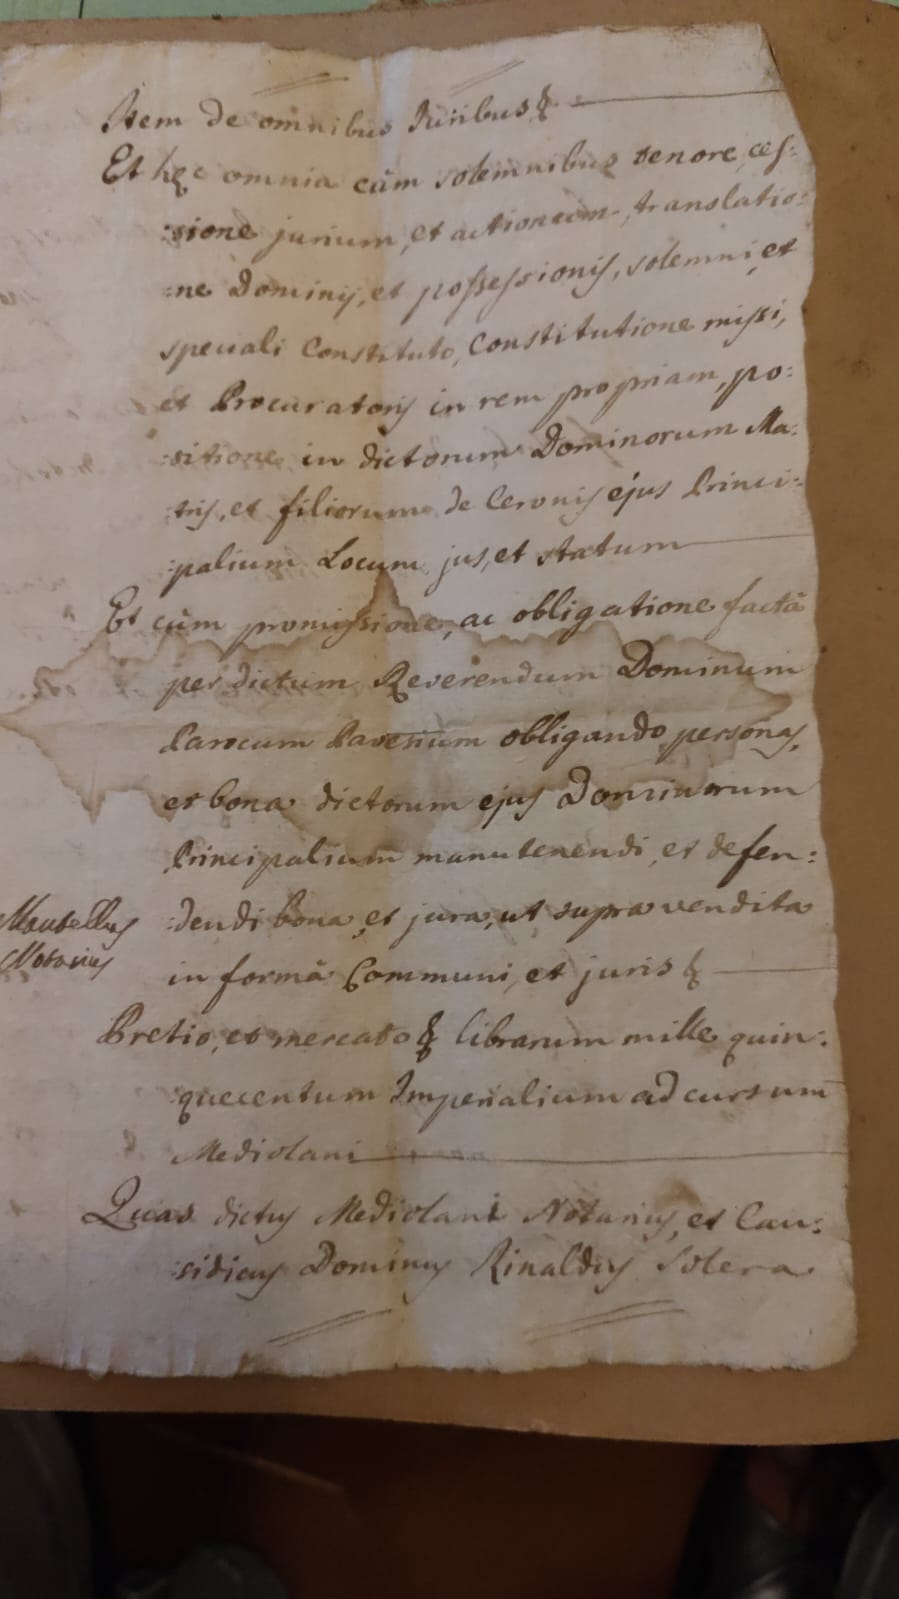 Item de omnibus Juribus &
Et hęc omnia cùm solemnibus tenore, ces:
:sione jurium, et actionum, translatio:
:ne Dominij, et possessionis, solemni, et
speciali Constituto, Constitutione missi,
et Procuratoris in rem propriam, po:
:sitione in dictorum Dominorum Ma:
:tris, et filiorum de Ceronis ejus Princi:
:palium Locum, jus, et statum
Et cùm promissione, ac obligatione factâ
per dictum Reverendum Dominum
Parocum Pavesium obligando personas,
et bona dictorum ejus Dominorum
Principalium manutenendi, et defen:
:dendi bona, et jura, ut supra vendita
in formâ Communi, et juris &
Mantellus
Notarius
Pretio, et mercato & librarum mille quin:
:quecentum Imperialium ad cursum
Mediolani
Quas dictus Mediolani Notarius, et Cau:
:sidicus Dominus Rinaldus Solera